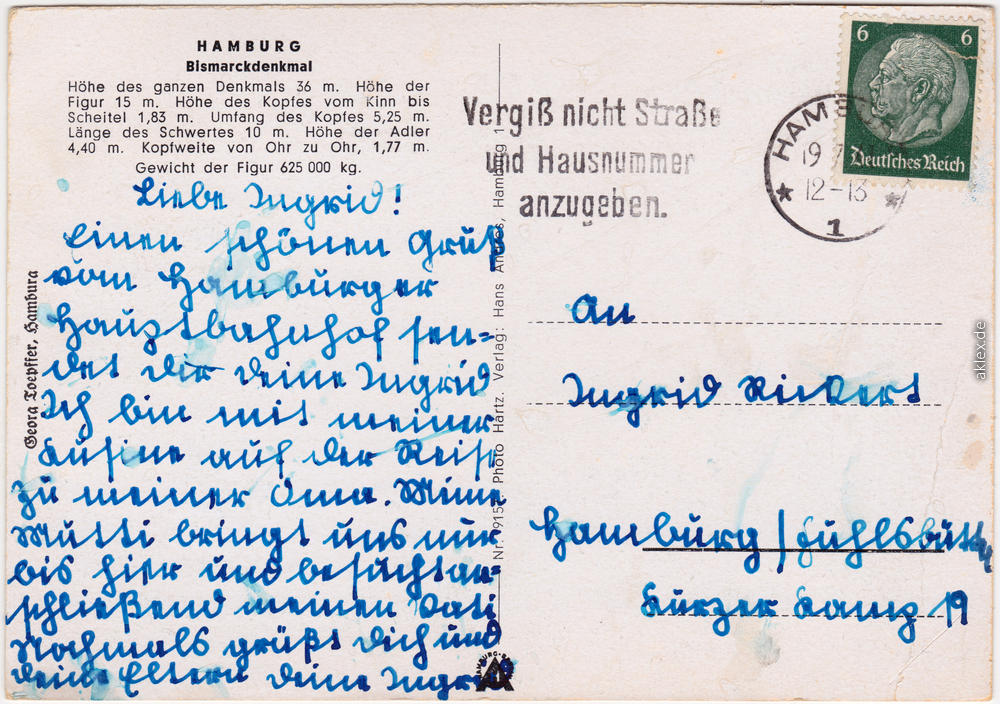 HAMBURG
Bismarckdenkmal
Höhe des ganzen Denkmals 36 m. Höhe der
Figur 15 m. Höhe des Kopfes vom Kinn bis
Scheitel 1,83 m. Umfang des Kopfes 5,25 m.
Länge des Schwertes 10 m. Höhe der Adler
4,40 m. Kopfweite von Ohr zu Ohr, 1,77 m.
Gewicht der Figur 625 000 kg.
Liebe Ingrid!
Einen schönen Gruß
vom Hamburger
Hauptbahnhof sen-
det dir deine Ingrid
Ich bin mit meiner
Kusine auf der Reise
zu meiner Oma. Meine
Mutti bringt uns nur
bis hier und besucht an-
schließend meinen Vati
Nochmals grüßt dich und
deine Eltern deine Ingrid
Georg Toepffer, Hamburg
Photo Hartz. Verlag: Hans Andres, Hamburg 1
Vergiß nicht Straße
und Hausnummer
anzugeben.
HAMB
19
12-13
1
6 6
Deutsches Reich
An
Ingrid Rickert
Hamburg / Fuhlsbüttel
Kurzer Kamp 19
aklex.de